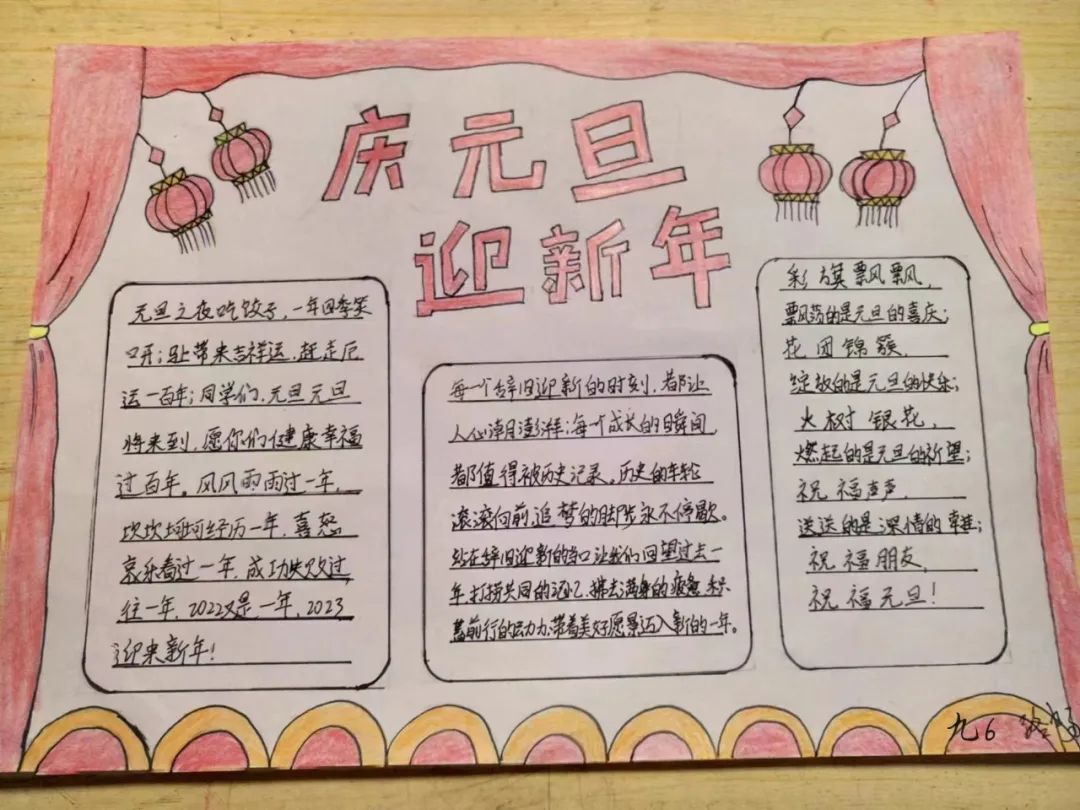 庆元旦
迎新年
元旦之夜吃饺子,一年四季笑
口开;马上带来吉祥运,赶走厄
运一百年;同学们,元旦元旦
将来到,愿你们健康幸福
过百年。风风雨雨过一年,
坎坎坷坷经历一年,喜怒
哀乐看过一年,成功失败过
往一年,2022又是一年,2023
迎来新年!
每一个辞旧迎新的时刻,都让
人心潮澎湃;每一个成长的瞬间,
都值得被历史记录。历史的车轮
滚滚向前,追梦的脚步永不停歇。
站在辞旧迎新的当口,让我们回望过去一
年,打捞共同的记忆,拂去满身的疲惫,积
蓄前行的动力,带着美好愿景迈入新的一年。
彩旗飘飘,
飘荡的是元旦的喜庆;
花团锦簇,
绽放的是元旦的快乐;
火树银花,
燃起的是元旦的祈望;
祝福声声,
送送的是深情的牵挂;
祝福朋友,
祝福元旦!
九6